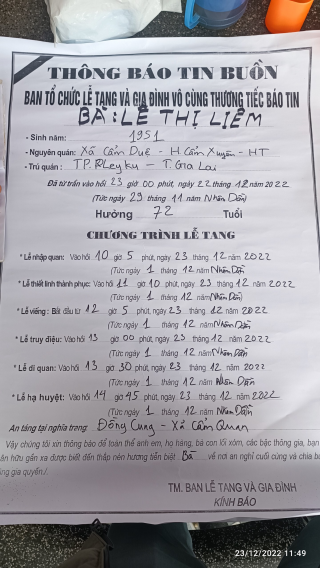 THÔNG BÁO TIN BUỒN
BAN TỔ CHỨC LỄ TANG VÀ GIA ĐÌNH VÔ CÙNG THƯƠNG TIẾC BÁO TIN
BÀ: LÊ THỊ LIÊM
- Sinh năm: 1951
- Nguyên quán: Xã Cẩm Duệ - H Cẩm Xuyên - HT
- Trú quán: TP. PLeyku - T. Gia Lai
Đã từ trần vào hồi 23 giờ 00 phút, ngày 22 tháng 12 năm 2022
(Tức ngày 29 tháng 11 năm Nhâm Dần)
Hưởng 72 Tuổi
CHƯƠNG TRÌNH LỄ TANG
* Lễ nhập quan: Vào hồi 10 giờ 5 phút, ngày 23 tháng 12 năm 2022
(Tức ngày 1 tháng 12 năm Nhâm Dần)
* Lễ thiết linh thành phục: Vào hồi 11 giờ 10 phút, ngày 23 tháng 12 năm 2022
(Tức ngày 1 tháng 12 năm Nhâm Dần)
* Lễ viếng: Bắt đầu từ 12 giờ 5 phút, ngày 23 tháng 12 năm 2022
(Tức ngày 1 tháng 12 năm Nhâm Dần)
* Lễ truy điệu: Vào hồi 13 giờ 00 phút, ngày 23 tháng 12 năm 2022
(Tức ngày 1 tháng 12 năm Nhâm Dần)
* Lễ di quan: Vào hồi 13 giờ 30 phút, ngày 23 tháng 12 năm 2022
(Tức ngày 1 tháng 12 năm Nhâm Dần)
* Lễ hạ huyệt: Vào hồi 14 giờ 45 phút, ngày 23 tháng 12 năm 2022
(Tức ngày 1 tháng 12 năm Nhâm Dần)
An táng tại nghĩa trang Đồng Cung - Xã Cẩm Quan
Vậy chúng tôi xin thông báo để toàn thể anh em, họ hàng, bà con lối xóm, các bậc thông gia, bạn
hân hữu gần xa được biết đến thắp nén hương tiễn biệt Bà về nơi an nghỉ cuối cùng và chia b
ng gia quyến./.
TM. BAN LỄ TANG VÀ GIA ĐÌNH
KÍNH BÁO
23/12/2022 11:49